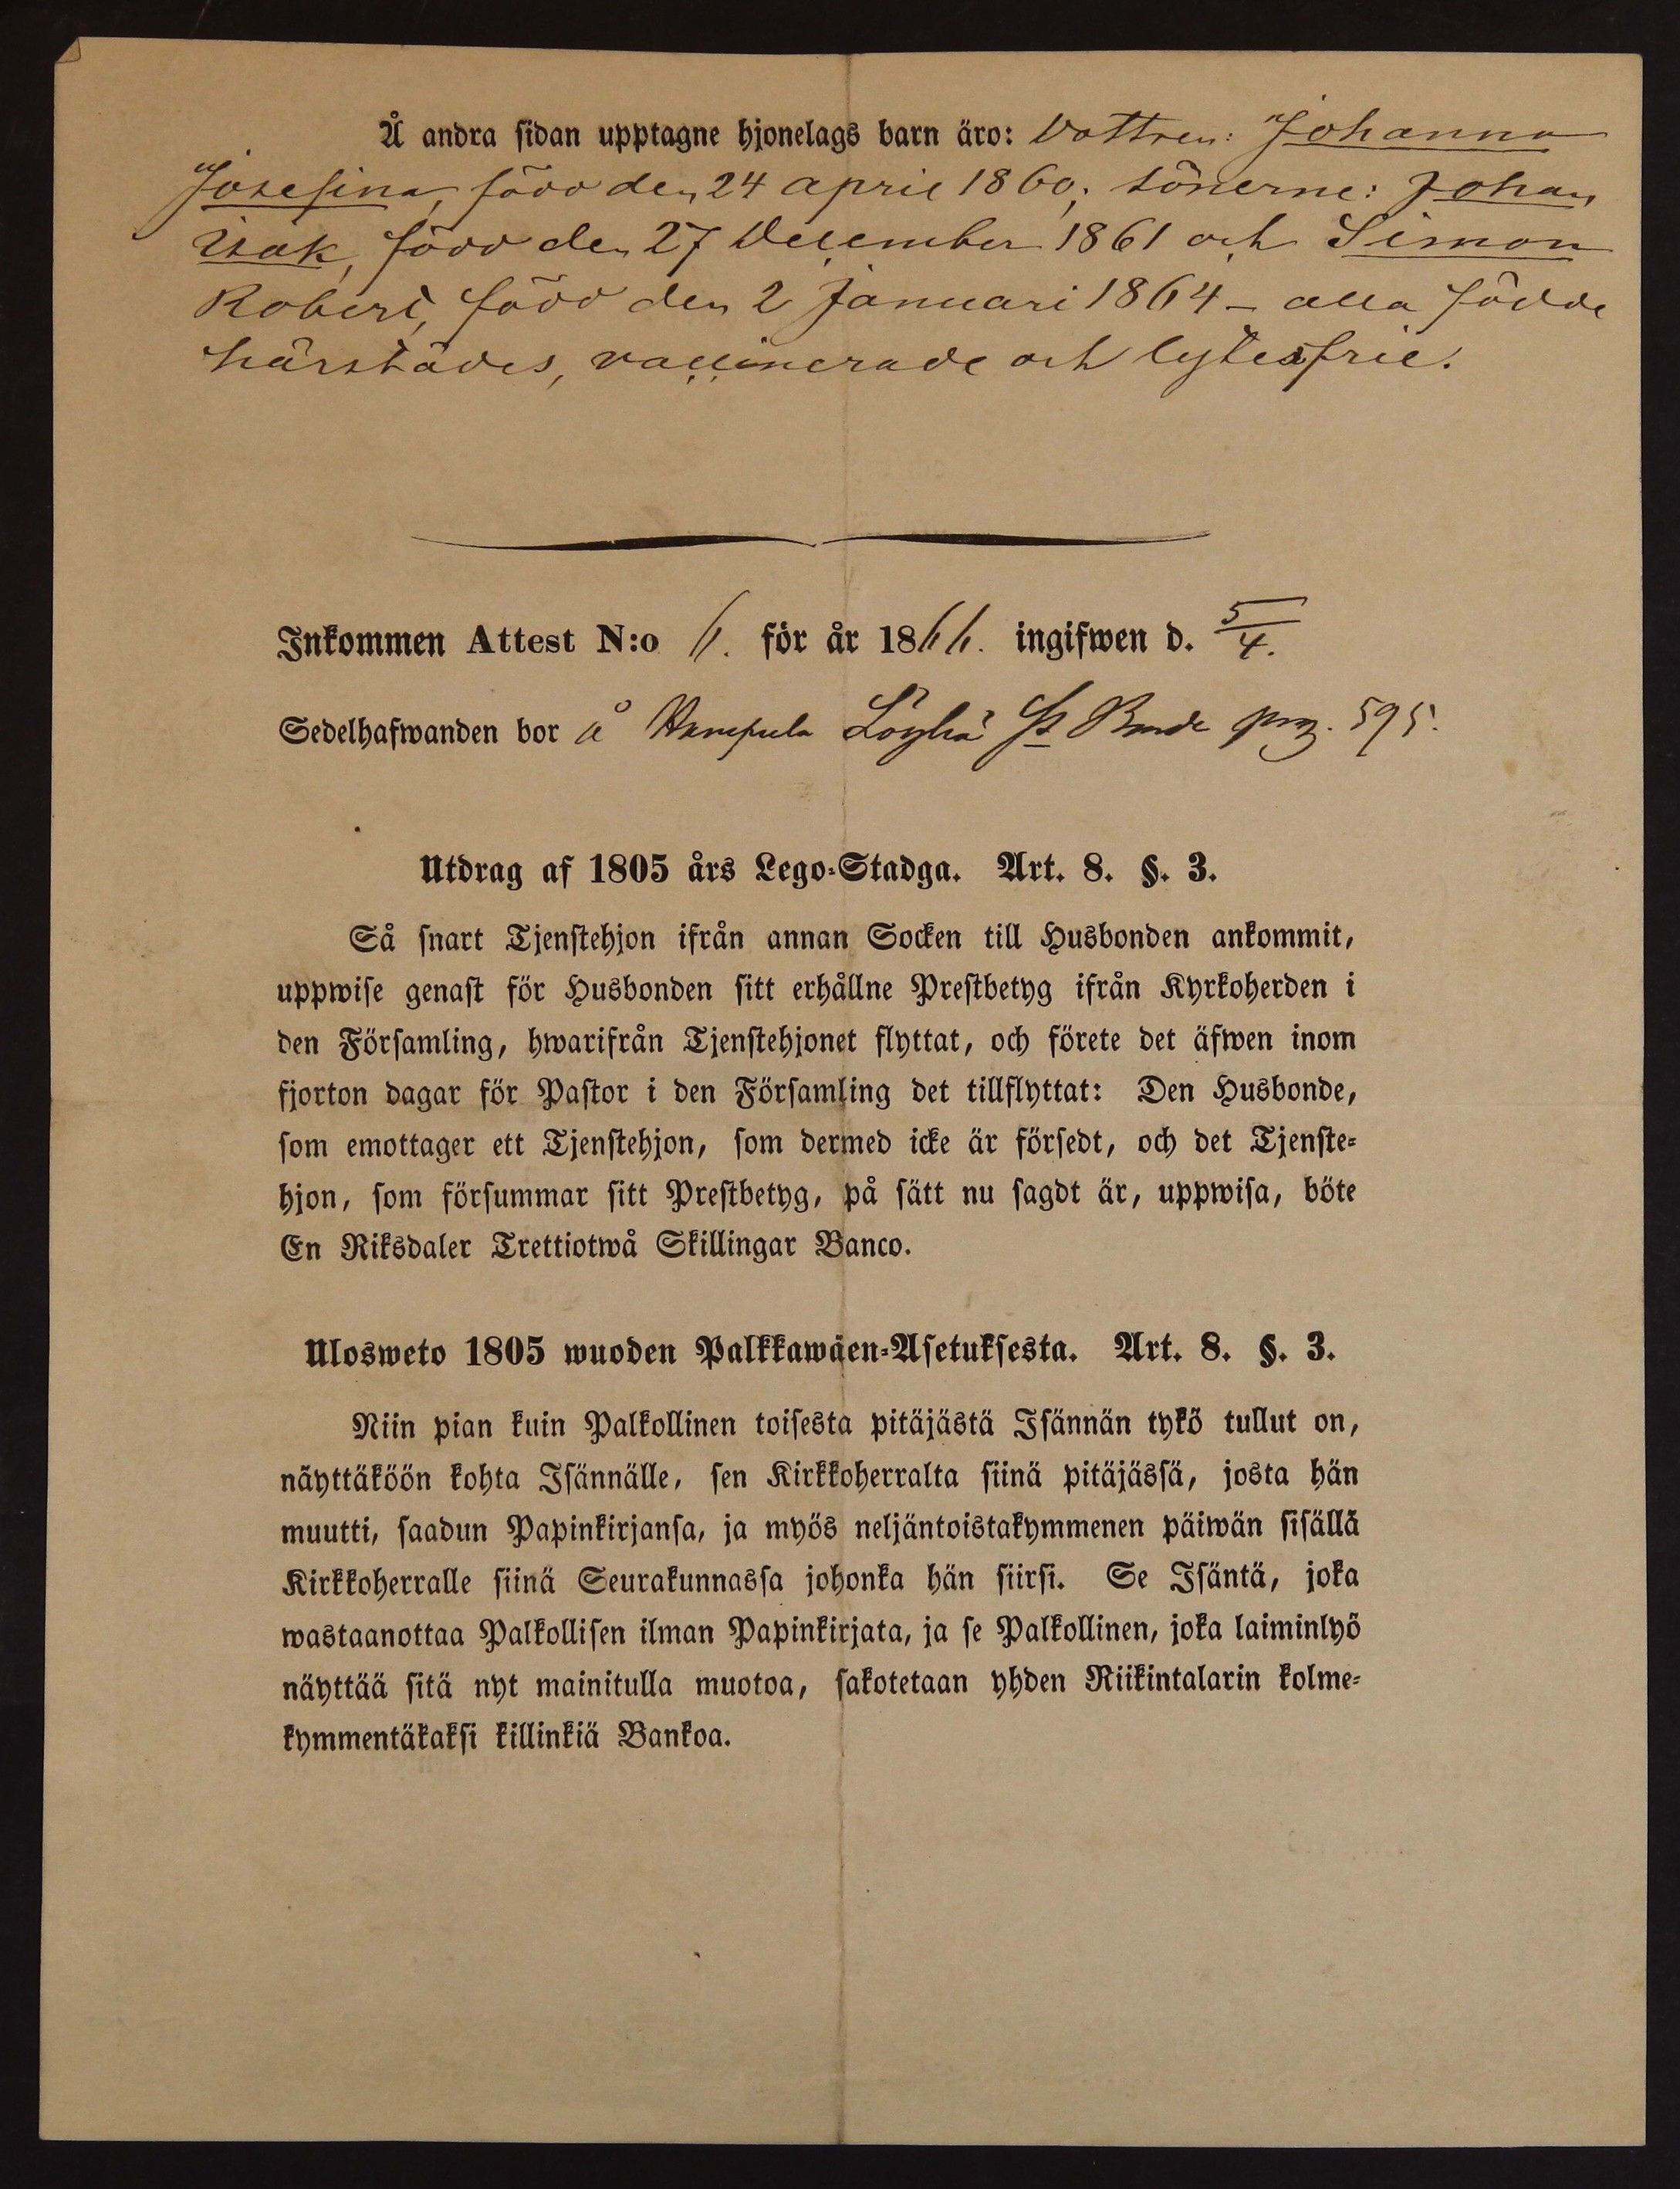 Å andra sidan upptagne hjonelags barn äro: Dottren: Johanna
Josefina, född den 24 april 1860; sönerne: Johan
Isak, född den 27 December 1861 och Simon
Robert, född den 2 Januari 1864 – alla födde
härstädes, vaccinerade och lytesfrie.
Inkommen Attest N:o 6. för år 1866. ingifwen d. 5/4.
Sedelhafwanden bor å Hampula Löyhä pag. 595.
Utdrag af 1805 års Lego-Stadga. Art. 8. §. 3.
Så snart Tjenstehjon ifrån annan Socken till Husbonden ankommit,
uppwise genast för Husbonden sitt erhållne Prestbetyg ifrån Kyrkoherden i
den Församling, hwarifrån Tjenstehjonet flyttat, och förete det äfwen inom
fjorton dagar för Pastor i den Församling det tillflyttat: Den Husbonde,
som emottager ett Tjenstehjon, som dermed icke är försedt, och det Tjenste-
hjon, som försummar sitt Prestbetyg, på sätt nu sagdt är, uppwisa, böte
En Riksdaler Trettiotwå Skillingar Banco.
Ulosweto 1805 wuoden Palkkawäen-Asetuksesta. Art. 8. §. 3.
Niin pian kuin Palkollinen toisesta pitäjästä Isännän tykö tullut on,
näyttäköön kohta Isännälle, sen Kirkkoherralta siinä pitäjässä, josta hän
muutti, saadun Papinkirjansa, ja myös neljäntoistakymmenen päiwän sisällä
Kirkkoherralle siinä Seurakunnassa johonka hän siirsi. Se Isäntä, joka
wastaanottaa Palkollisen ilman Papinkirjata, ja se Palkollinen, joka laiminlyö
näyttää sitä nyt mainitulla muotoa, sakotetaan yhden Riikintalarin kolme-
kymmentäkaksi killinkiä Bankoa.